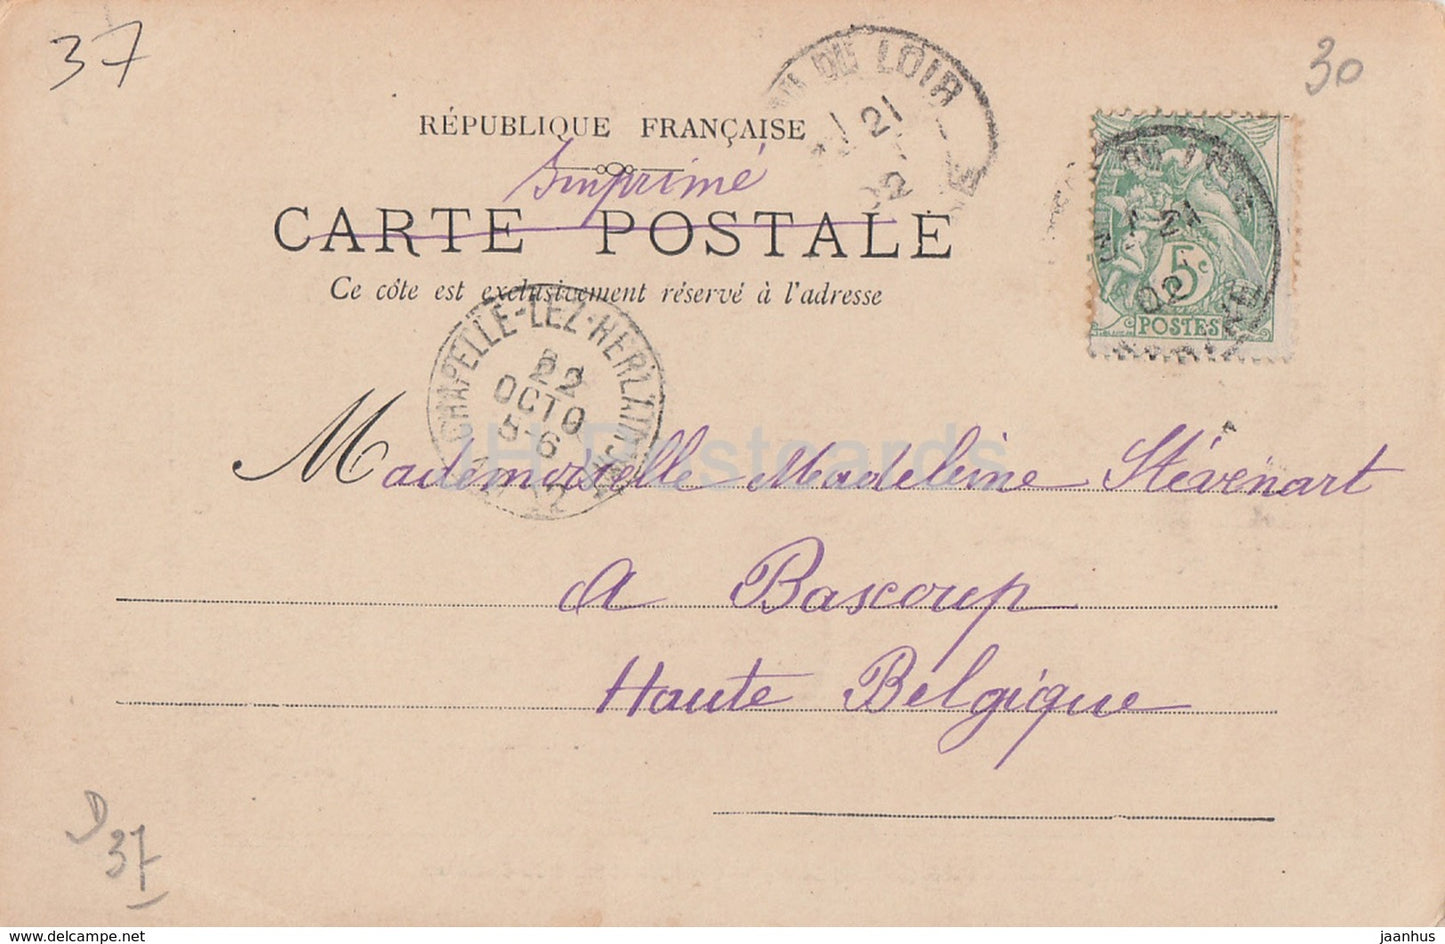 37
30
DU LOIR
21
02
RÉPUBLIQUE FRANÇAISE
Imprimé
CARTE POSTALE
Ce côte est exclusivement réservé à l'adresse
21
02
5c
POSTES
CHAPELLE-LEZ-HERLAIM
22
OCTO
5-6
JH Postcards
Mademoiselle Madeleine Stévenart
A Bascoup
Haute Belgique
D
37
www.delcampe.net
jaanhus